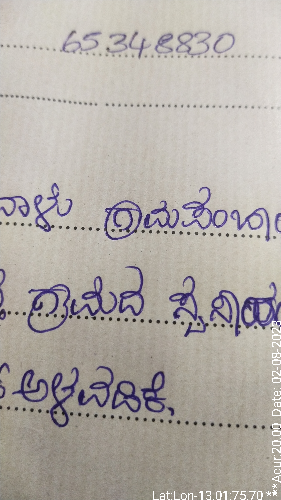 65348830
ವಾಳು ಗ್ರಾಮಪಂಚಾ
ಗ್ರಾಮದ
ಅಳವಡಿಕೆ.
Lat:Lon-13.01:75.70***Acur:20.00 Date: 02-08-2023